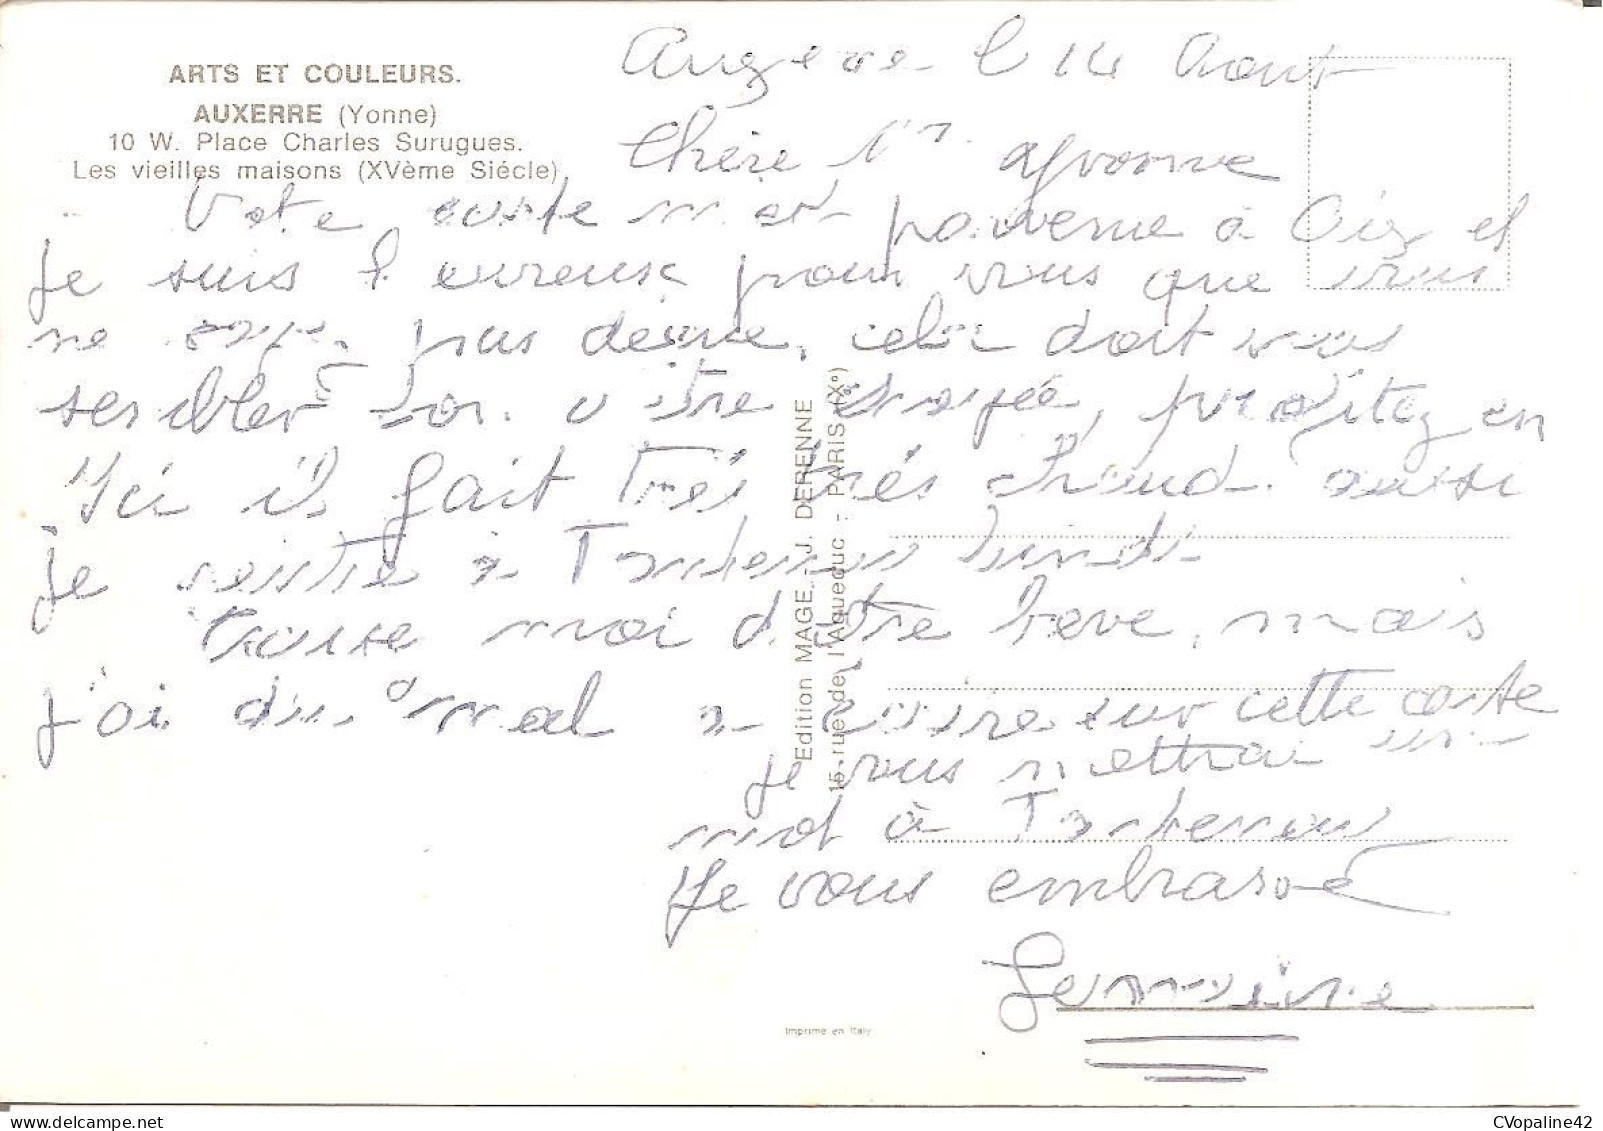 ARTS ET COULEURS.
AUXERRE (Yonne)
10 W. Place Charles Surugues.
Les vieilles maisons (XVème Siécle)
le 14 Aout
Chère
Vote carte m'est parvenue à et
je suis heureux pour vous que vous
ne pas cela doit vous
sembler bon. profitez en
Ici il fait très très chaud. aussi
je rentre à lundi
moi d'être breve, mais
j'ai du mal a écrire sur cette carte
je vous mettrai un
mot à
Je vous embrasse
Germaine
Edition MAGE. J. DERENNE
15, rue de l'Aqueduc - PARIS (Xº)
Imprimé en Italy
CVopaline42